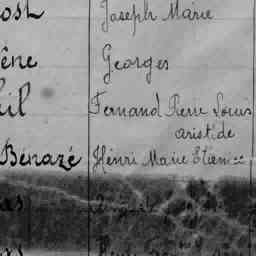 ost Joseph Marie
êne Georges
il Fernand René Louis
arist. de
Bénazé Henri Marie Etien==
as